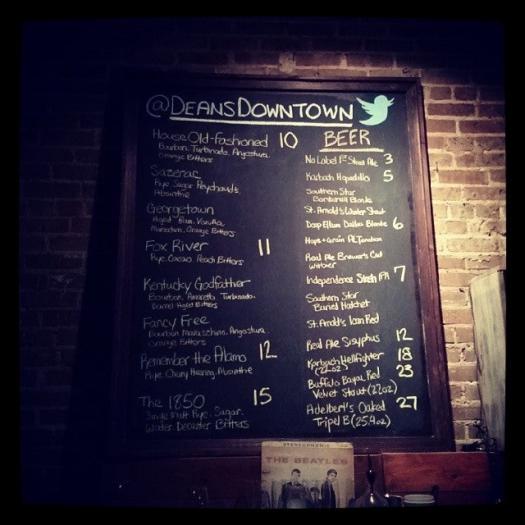 @DEANSDOWNTOWN
House Old-fashioned 10
Bourbon, Turbinado, Angostura,
Orange Bitters
Sazerac
Rye, Sugar, Peychaud's,
Absinthe
Georgetown
Aged Rum, Vanilla,
Maraschino, Orange Bitters.
Fox River 11
Rye, Cacao, Peach Bitters.
Kentucky Godfather
Bourbon, Amaretto, Turbinado,
Barrel Aged Bitters
Fancy Free
Bourbon, Maraschino, Angostura,
Orange Bitters
Remember the Alamo 12
Rye, Cherry Heering, Absinthe
The 1850 15
Single Malt Rye, Sugar,
Wooden Decanter Bitters
BEER
No Label 1st Street Ale 3
Karbach Hopadillo 5
Southern Star
Bombshell Blonde
St. Arnold's Winter Stout
Deep Ellum Dallas Blonde 6
Hops & Grain ALTeration
Real Ale Brewer's Cut
Independence Stash IPA 7
Southern Star
Buried Hatchet
St. Arnold's Icon Red
Real Ale Sisyphus 12
Karbach Hellfighter 18
(22oz)
Buffalo Bayou Red 23
Velvet Stout (22oz)
Adelbert's Oaked 27
Tripel B (25.4oz)
STEREOPHONIC
THE BEATLES